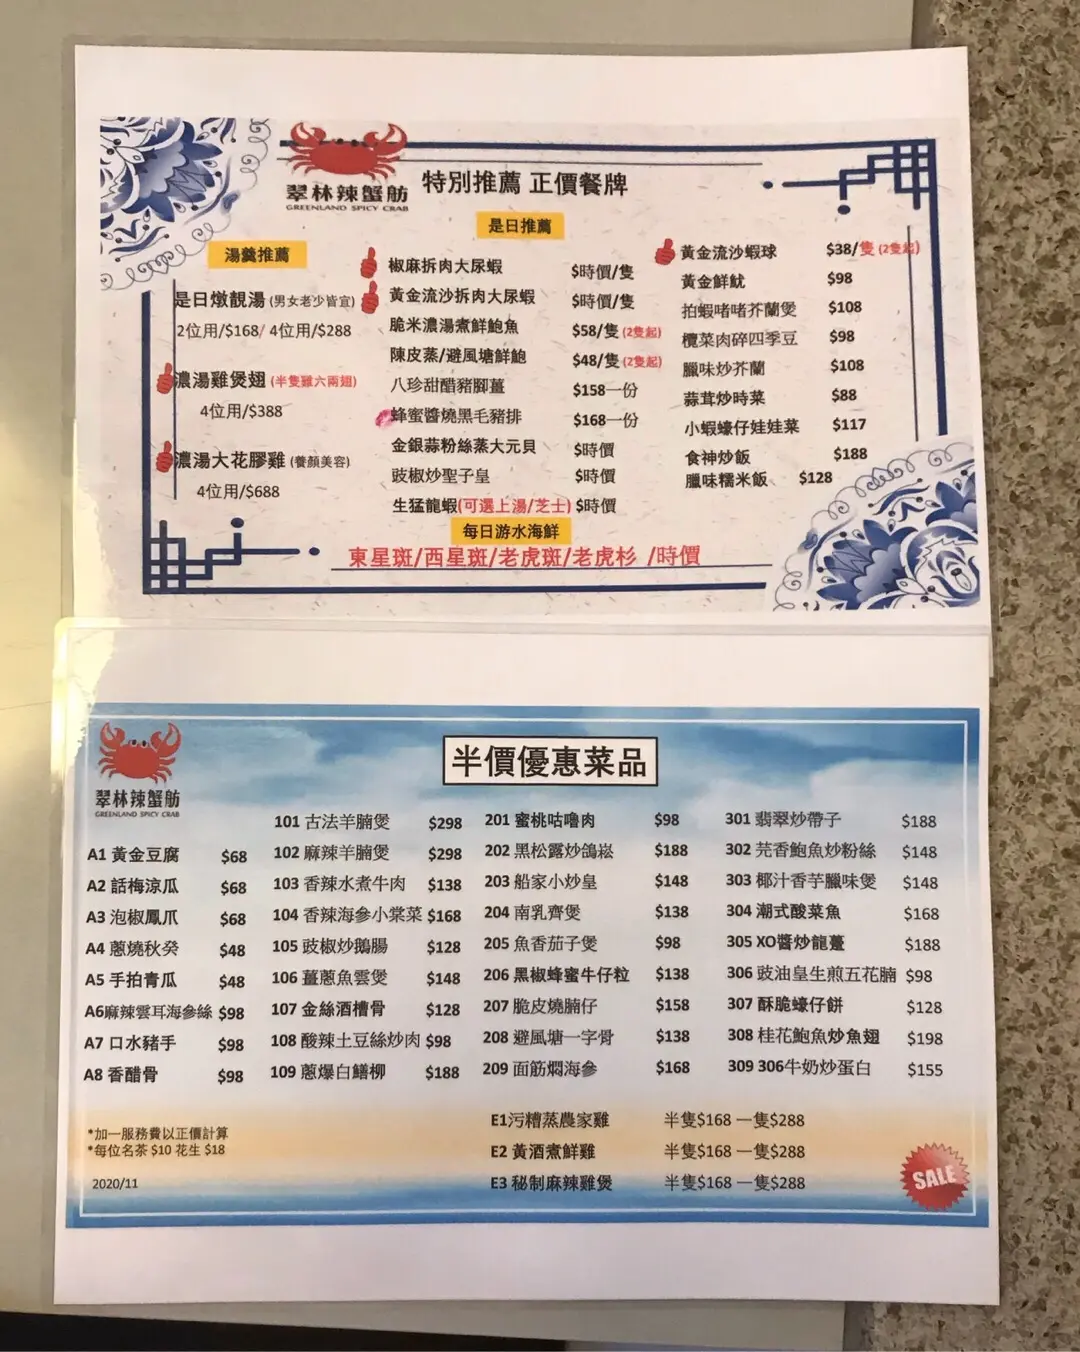 翠林辣蟹舫
GREENLAND SPICY CRAB
特別推薦 正價餐牌
湯羹推薦
是日燉靚湯 (男女老少皆宜)
2位用/$168/ 4位用/$288
濃湯雞煲翅 (半隻雞六兩翅)
4位用/$388
濃湯大花膠雞 (養顏美容)
4位用/$688
是日推薦
椒麻拆肉大尿蝦 $時價/隻
黃金流沙拆肉大尿蝦 $時價/隻
脆米濃湯煮鮮鮑魚 $58/隻 (2隻起)
陳皮蒸/避風塘鮮鮑 $48/隻 (2隻起)
八珍甜醋豬腳薑 $158一份
蜂蜜醬燒黑毛豬排 $168一份
金銀蒜粉絲蒸大元貝 $時價
豉椒炒聖子皇 $時價
生猛龍蝦(可選上湯/芝士) $時價
黃金流沙蝦球 $38/隻 (2隻起)
黃金鮮魷 $98
拍蝦啫啫芥蘭煲 $108
欖菜肉碎四季豆 $98
臘味炒芥蘭 $108
蒜茸炒時菜 $88
小蝦蠔仔娃娃菜 $117
食神炒飯 $188
臘味糯米飯 $128
每日游水海鮮
東星斑/西星斑/老虎斑/老虎杉 /時價
翠林辣蟹舫
GREENLAND SPICY CRAB
半價優惠菜品
A1 黃金豆腐 $68
A2 話梅涼瓜 $68
A3 泡椒鳳爪 $68
A4 蔥燒秋葵 $48
A5 手拍青瓜 $48
A6麻辣雲耳海參絲 $98
A7 口水豬手 $98
A8 香醋骨 $98
101 古法羊腩煲 $298
102 麻辣羊腩煲 $298
103 香辣水煮牛肉 $138
104 香辣海參小棠菜 $168
105 豉椒炒鵝腸 $128
106 薑蔥魚雲煲 $148
107 金絲酒槽骨 $128
108 酸辣土豆絲炒肉 $98
109 蔥爆白鱔柳 $188
201 蜜桃咕嚕肉 $98
202 黑松露炒鴿崧 $188
203 船家小炒皇 $148
204 南乳齋煲 $138
205 魚香茄子煲 $98
206 黑椒蜂蜜牛仔粒 $138
207 脆皮燒腩仔 $158
208 避風塘一字骨 $138
209 面筋燜海參 $168
301 翡翠炒帶子 $188
302 芫香鮑魚炒粉絲 $148
303 椰汁香芋臘味煲 $148
304 潮式酸菜魚 $168
305 XO醬炒龍躉 $188
306 豉油皇生煎五花腩 $98
307 酥脆蠔仔餅 $128
308 桂花鮑魚炒魚翅 $198
309 306牛奶炒蛋白 $155
E1污糟蒸農家雞 半隻$168 一隻$288
E2 黃酒煮鮮雞 半隻$168 一隻$288
E3 秘制麻辣雞煲 半隻$168 一隻$288
*加一服務費以正價計算
*每位名茶 $10 花生 $18
2020/11
SALE